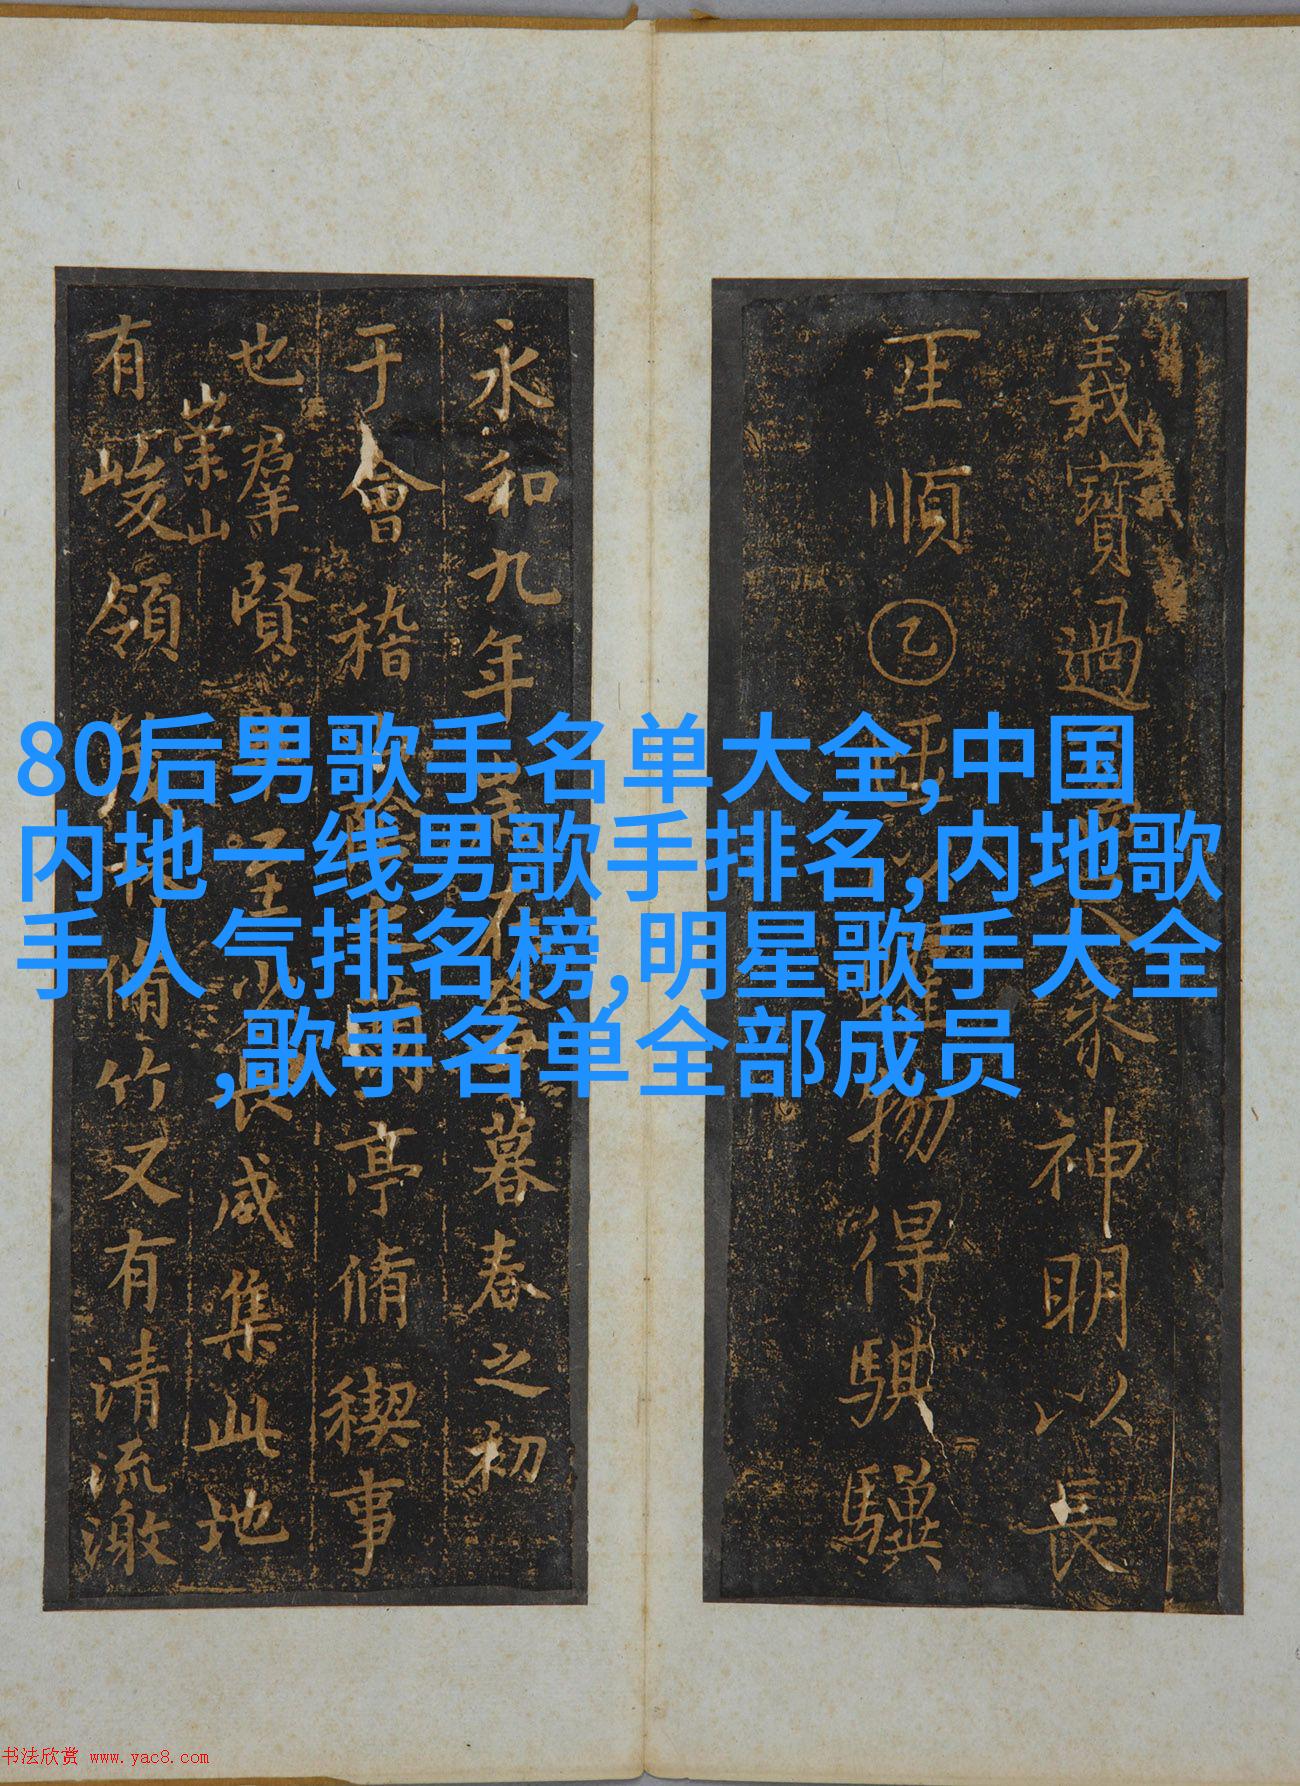 80后男歌手名单大全,中国
内地一线男歌手排名,内地歌
手人气排名榜,明星歌手大全
,歌手名单全部成员
義寶過
神明以長
順乙
物得騏驥
永和九年
暮春之初
于會稽
亭脩禊事
也羣賢
咸集此地
崇山
有峻領
脩竹又有清流激
书法欣赏 www.yac8.com